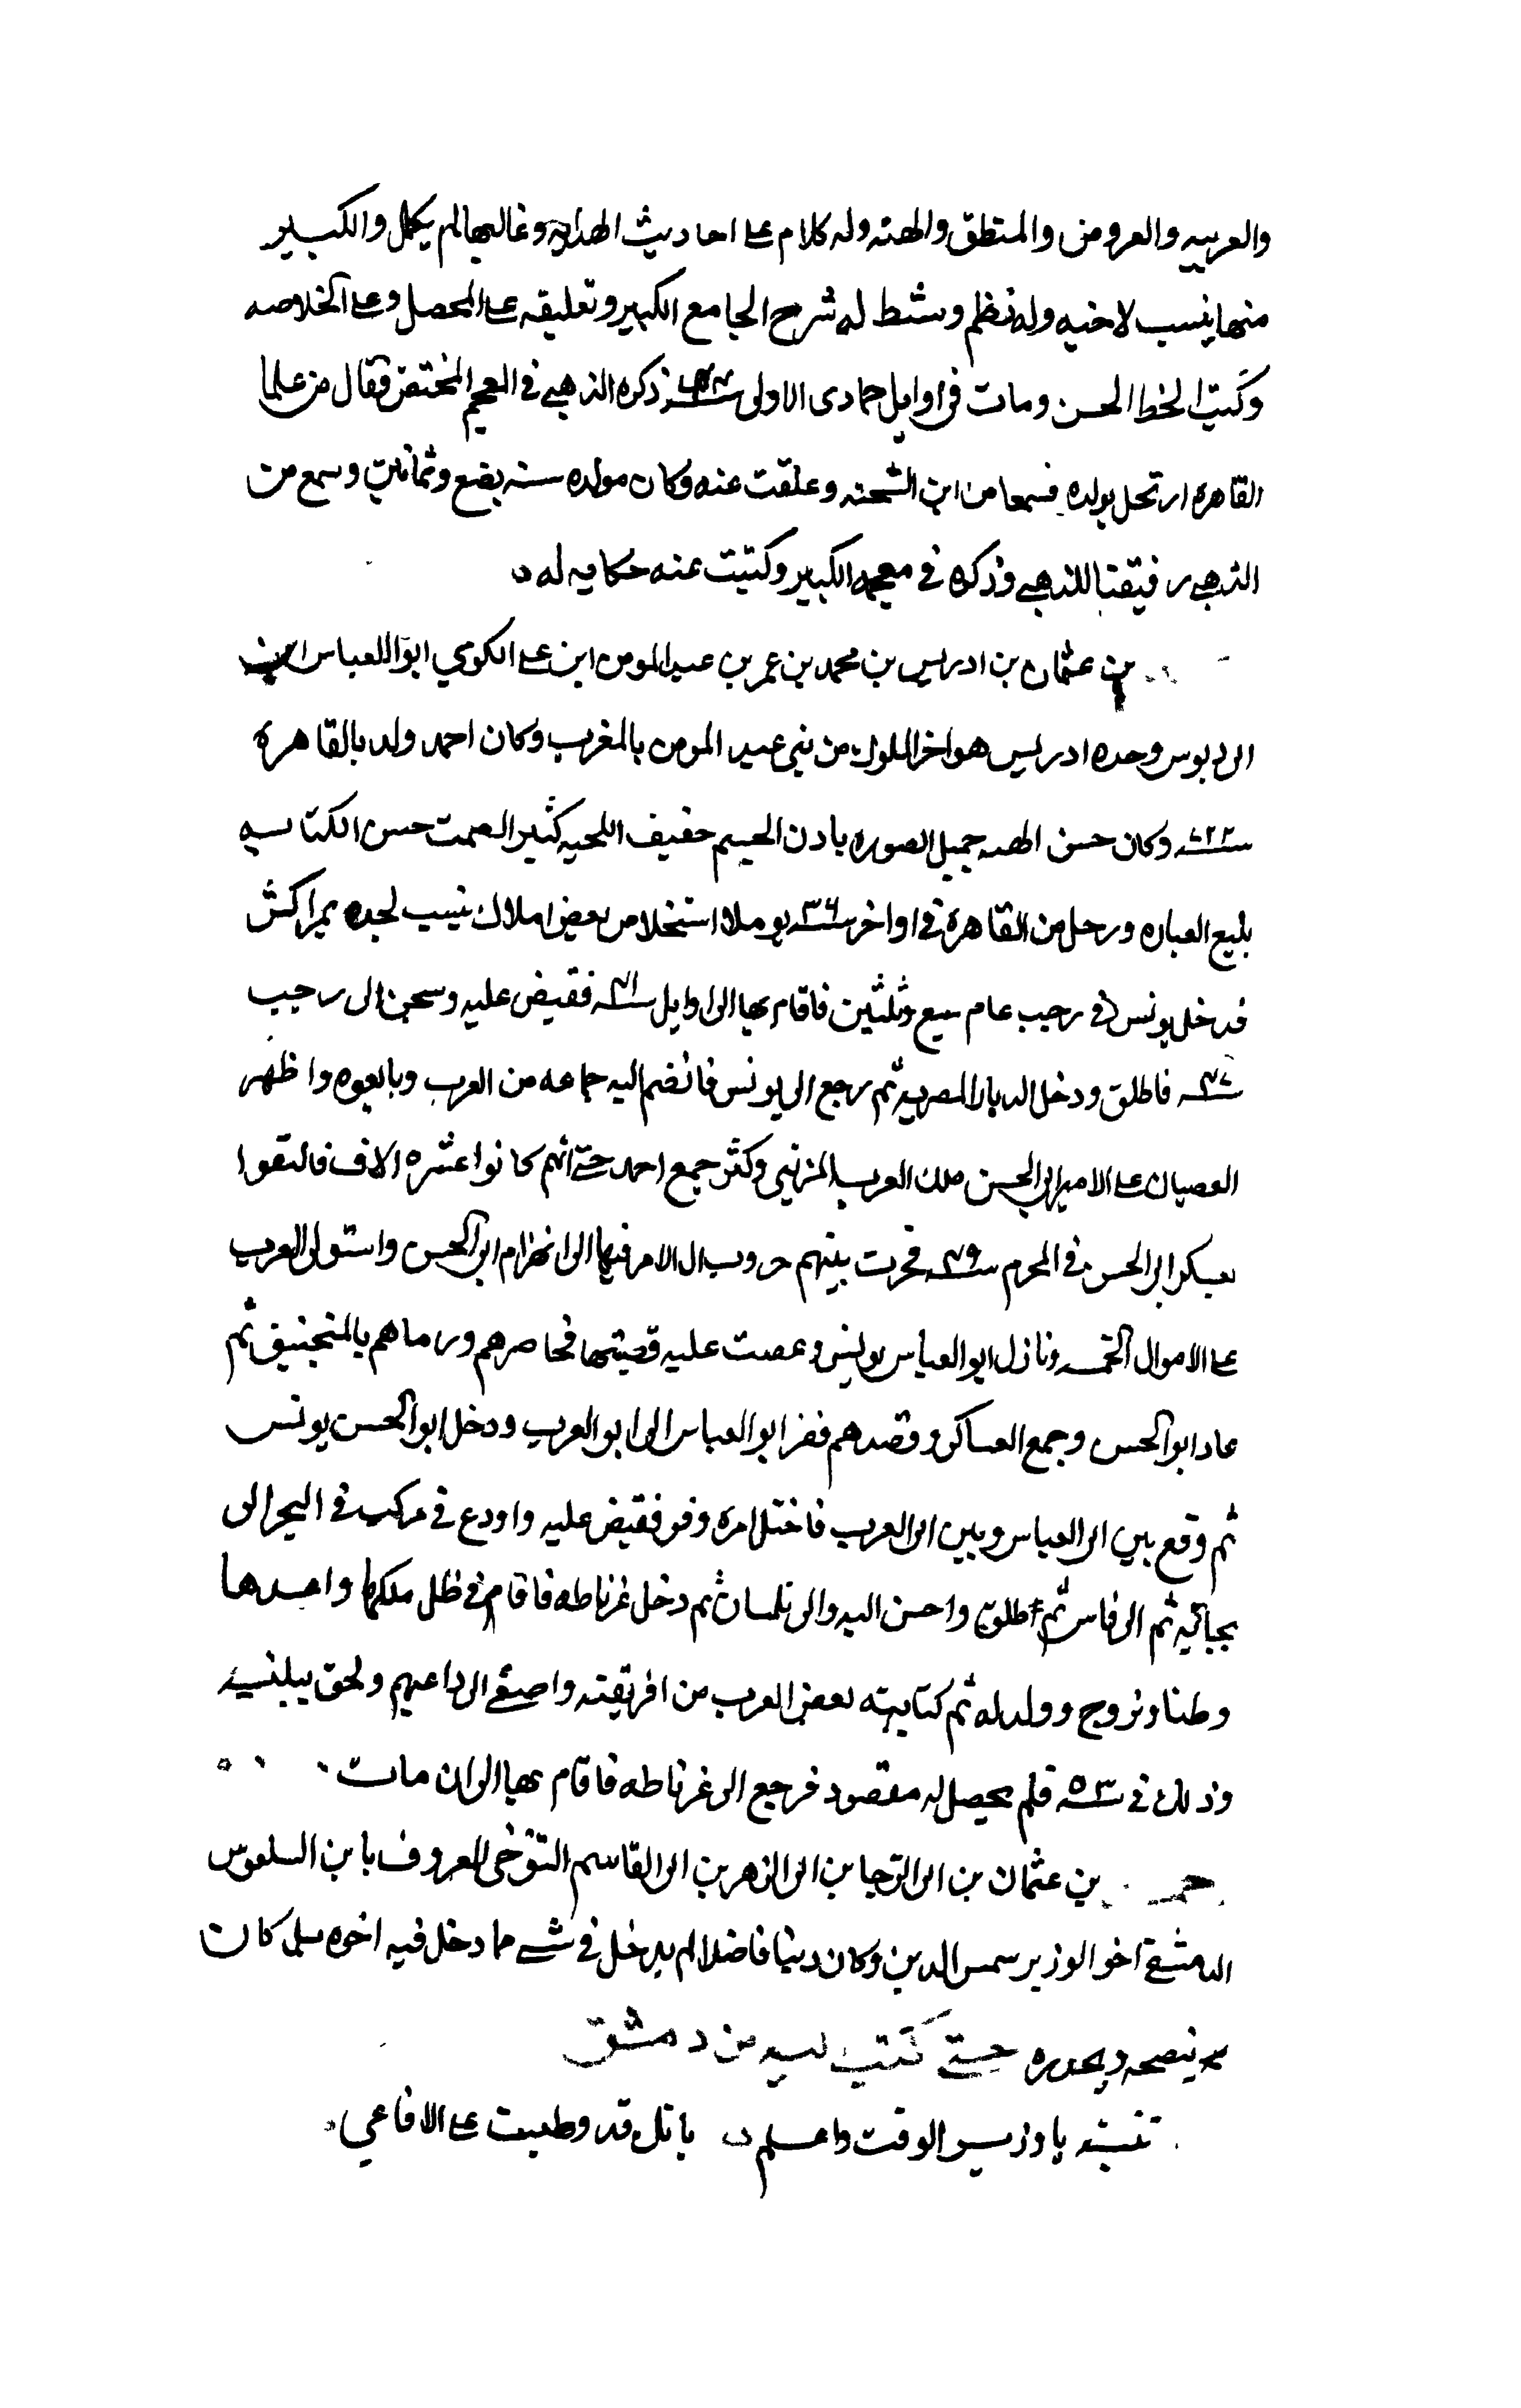 والعربيه والعروض والمنطق والهئه وله كلام على احاديث الهدايه وغالبها لم يكمل والكبير
منها ينسب لاخيه وله نظم وسط له شرح الجامع الكبير وتعليقه على المحصل وعلى الخلاصه
وكتب الخط الحسن ومات في اوايل جمادى الاولى ذكره الذهبي في المعجم المختص فقال من علما
القاهره ارتحل بولده فسمعا من ابن الشحنه وعلقت عنه وكان مولده سنه بضع وثمانين وسمع من
الذهبي رفيقنا للذهبي وذكره في معجمه الكبير وكتبت عنه حكايه له
بن عثمان بن ادريس بن محمد بن عمر بن عبد المومن ابن على الكومي ابو العباس ابن
ابي دبوس وجده ادريس هو اخر الملوك من بني عبد المومن بالمغرب وكان احمد ولد بالقاهرة
وكان حسن الهيه جميل الصوره بادن الجسم خفيف اللحيه كثير الصمت حسن الكتابه
بليغ العباره ورحل من القاهرة في اواخر سنه ٣٦ يوملا استخلاص بعض املاك ينسب لجده بمراكش
فدخل يونس في رجب عام سبع وثلثين فاقام بها الى اوايل سنه فقبض عليه وسجن الى رجب
سنه فاطلق ودخل الديار المصريه ثم رجع الى يونس فانضم اليه جماعه من العرب وبايعوه واظهر
العصيان على الامير ابي الحسن ملك العرب المزيني وكثر جمع احمد حتى انهم كانوا عشره الاف فالتقوا
بعسكر ابي الحسن في المحرم سنه ٤٩ فجرت بينهم حروب ال الامر فيها الى انهزام ابي الحسن واستولى العرب
على الاموال ونازل ابو العباس يونس وعصت عليه قصبتها فحاصرهم ورماهم بالمنجنيق ثم
عاد ابو الحسن وجمع العساكر وقصدهم ففر ابو العباس الى ابو العرب ودخل ابو الحسن يونس
ثم وقع بين ابي العباس وبين ابي العرب فاختل امره وفر فقبض عليه واودع في مركب في البحر الى
بجايه ثم الى فاس ثم اطلق واحسن اليه والى تلمسان ثم دخل غرناطه فاقام في ظل ملكها
وطنا وتزوج وولد له ثم كتابته بعض العرب من افريقيه واصغى الى داعيهم ولحق ببلنسيه
وذلك في سنه ٥٣ فلم يحصل له مقصود فرجع الى غرناطه فاقام بها الى ان مات
بن عثمان بن ابي الرجا بن ابي الزهر بن ابي القاسم التنوخي المعروف بابن السلعوس
الدمشقي اخو الوزير سمس الدين وكان دينا فاضلا لم يدخل في شي مما دخل فيه اخوه بل كان
ينصحه ويحذره حتى كتب اليه من دمشق
تنبه يا وزير الوقت واعلم بانك قد وطيت على الافاعي